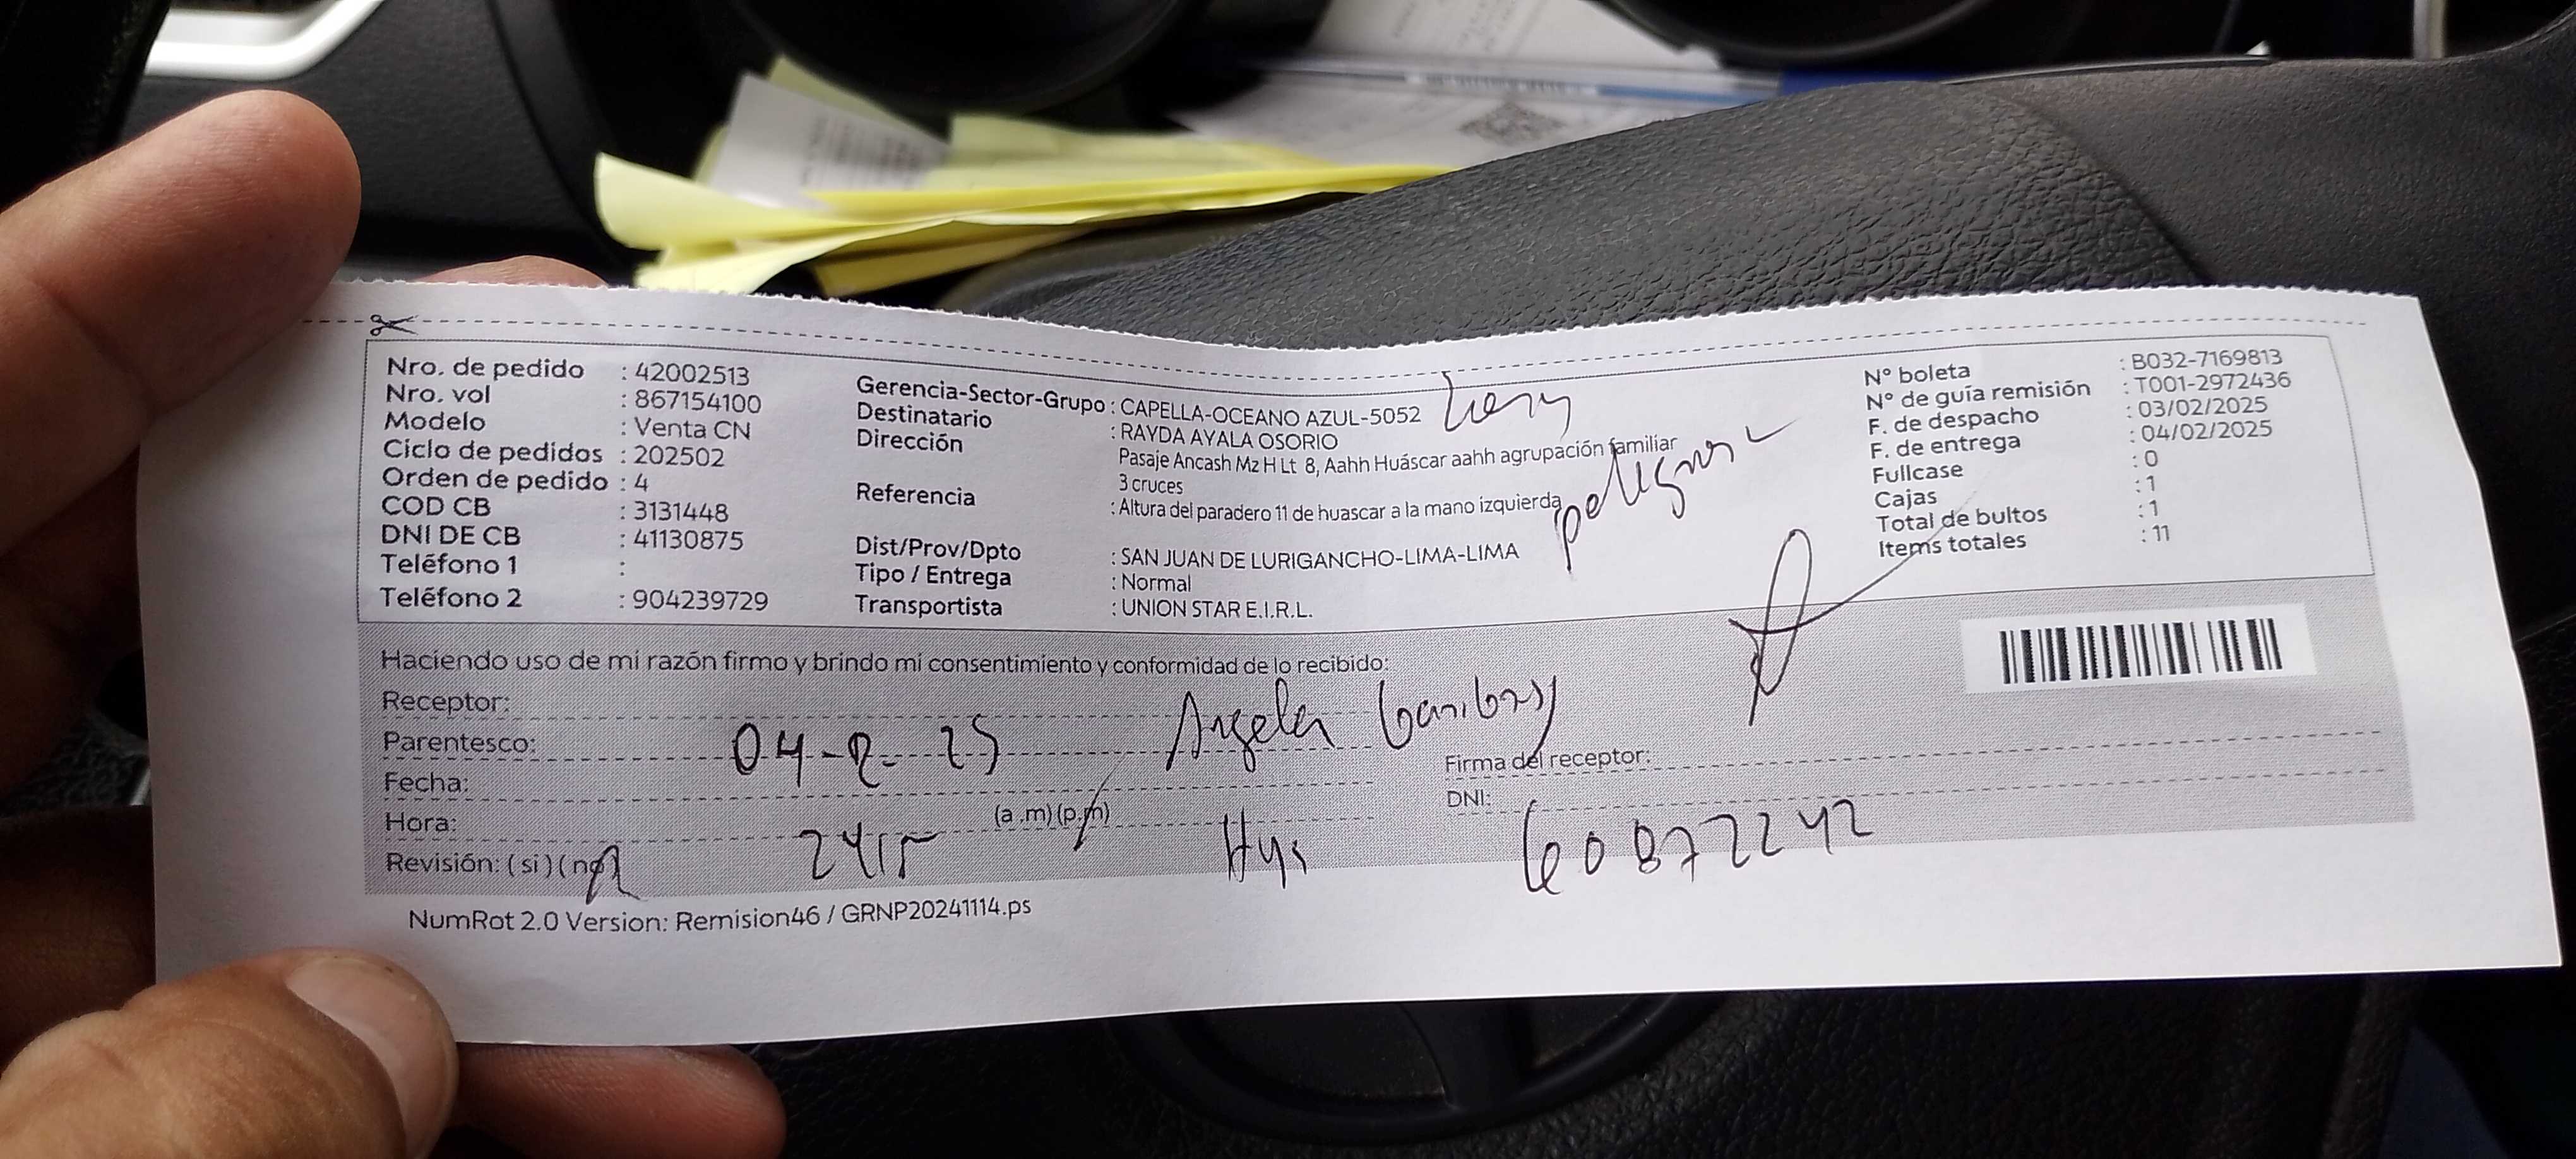 Nro. de pedido : 42002513
Nro. vol : 867154100
Modelo : Venta CN
Ciclo de pedidos : 202502
Orden de pedido : 4
COD CB : 3131448
DNI DE CB : 41130875
Teléfono 1 :
Teléfono 2 : 904239729
Gerencia-Sector-Grupo : CAPELLA-OCEANO AZUL-5052
Destinatario : RAYDA AYALA OSORIO
Dirección
Pasaje Ancash Mz H Lt 8, Aahh Huáscar aahh agrupación familiar
3 cruces
Referencia : Altura del paradero 11 de huascar a la mano izquierda
Dist/Prov/Dpto : SAN JUAN DE LURIGANCHO-LIMA-LIMA
Tipo / Entrega : Normal
Transportista : UNION STAR E.I.R.L.
N° boleta : B032-7169813
N° de guía remisión : T001-2972436
F. de despacho : 03/02/2025
F. de entrega : 04/02/2025
Fullcase : 0
Cajas : 1
Total de bultos : 1
Items totales : 11
Haciendo uso de mi razón firmo y brindo mi consentimiento y conformidad de lo recibido:
Receptor: Angela
Parentesco:
Fecha: 04-2-25
Hora: (a.m) (p.m)
Revisión: (si) (no)
Firma del receptor:
DNI: 60872242
NumRot 2.0 Version: Remision46 / GRNP20241114.ps